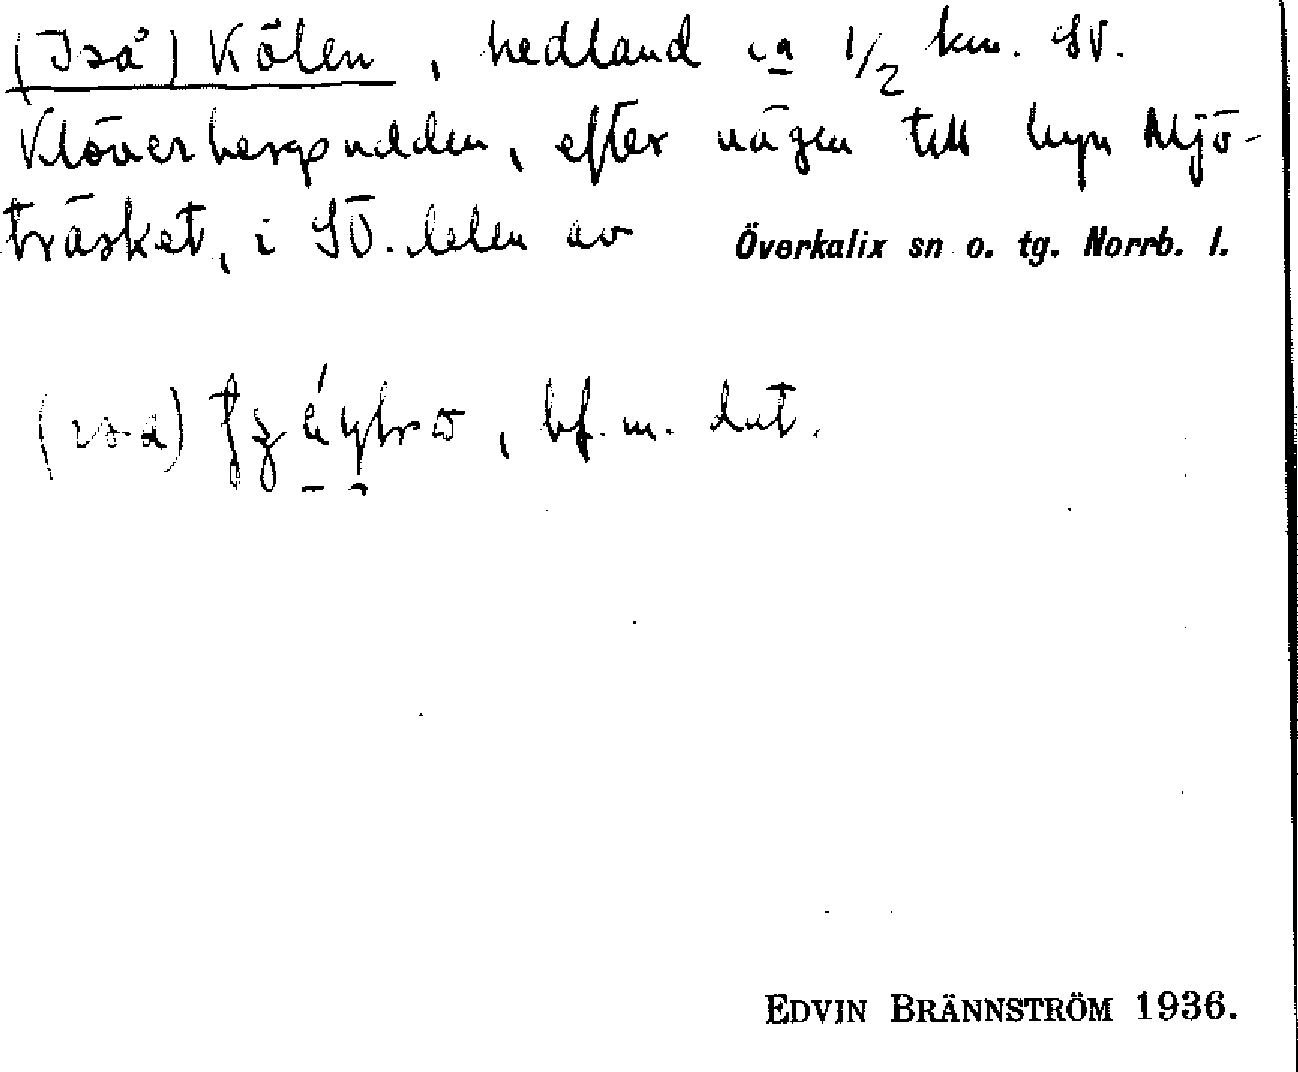 (Iså) Kölen, hedland ca 1/2 km. SV.
Klöverbergsudden, efter vägen till byn Mjö-
träsket, i SÖ. delen av Överkalix sn o. tg. Norrb. l.
bf. m. dat.
EDVIN BRÄNNSTRÖM 1936.